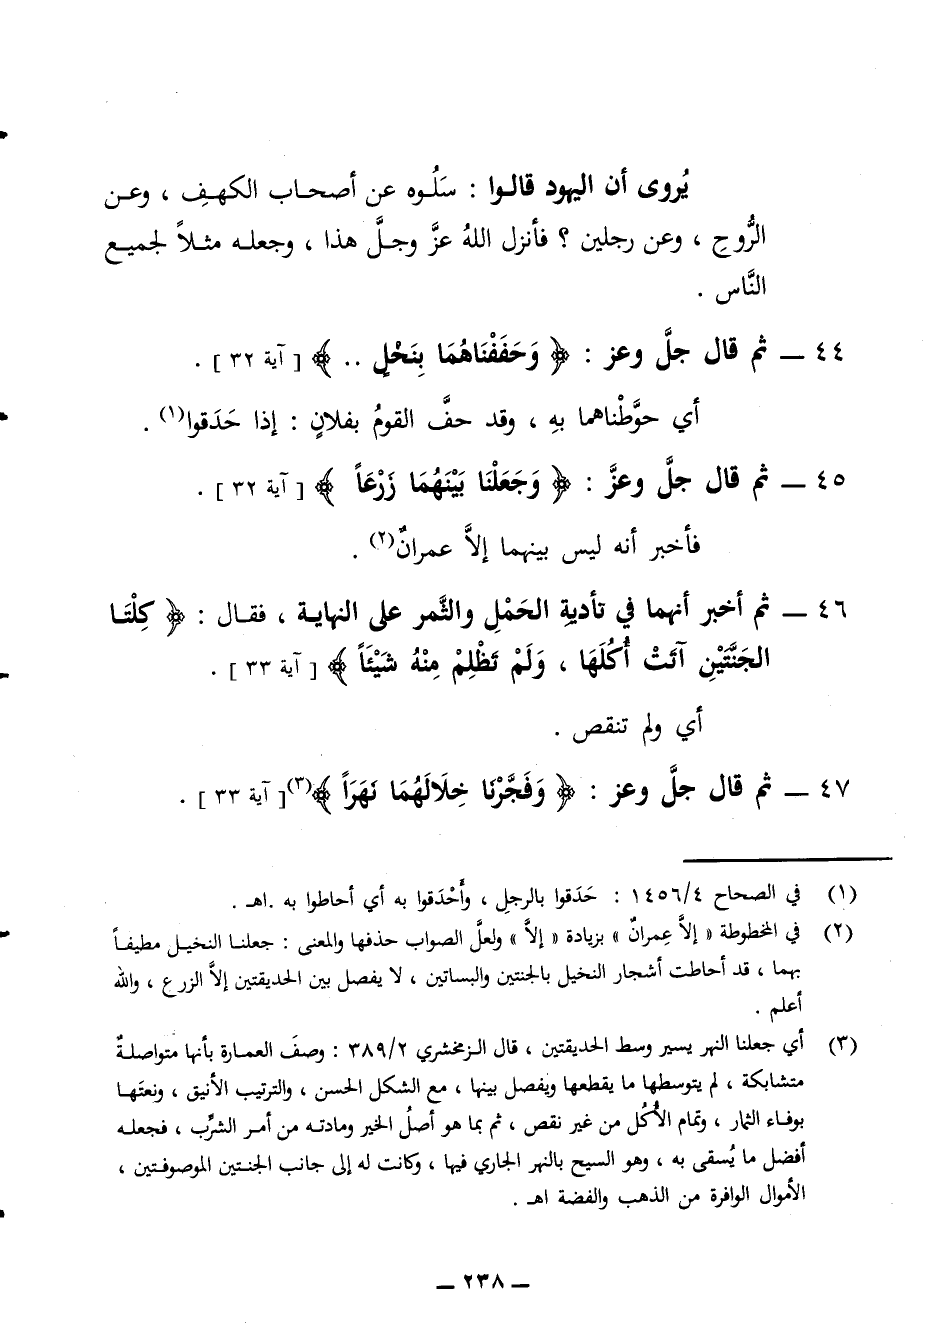 يُروى أن اليهود قالوا : سَلُوه عن أصحاب الكهفِ ، وعن
الرُّوحِ ، وعن رجلين ؟ فأنزل اللهُ عزَّ وجلَّ هذا ، وجعله مثلاً لجميع
النَّاس .
٤٤ ــ ثم قال جلَّ وعز : ﴿ وَحَفَفْنَاهُمَا بِنَخْلٍ .. ﴾ [ آية ٣٢ ] .
أي حوَّطْناهما بهِ ، وقد حفَّ القومُ بفلانٍ : إذا حَدَقوا(١) .
٤٥ ــ ثم قال جلَّ وعزَّ : ﴿ وَجَعَلْنَا بَيْنَهُمَا زَرْعَاً ﴾ [ آية ٣٢ ] .
فأخبر أنه ليس بينهما إلاَّ عمرانٌ(٢) .
٤٦ ــ ثم أخبر أنهما في تأديةِ الحَمْلِ والثَّمر على النهاية ، فقال : ﴿ كِلْتَا
الجَنَّتَيْنِ آتَتْ أُكُلَهَا ، وَلَمْ تَظْلِمْ مِنْهُ شَيْئَاً ﴾ [ آية ٣٣ ] .
أي ولم تنقص .
٤٧ ــ ثم قال جلَّ وعز : ﴿ وَفَجَّرْنَا خِلَالَهُمَا نَهَرَاً ﴾(٣)[ آية ٣٣ ] .
(١) في الصحاح ١٤٥٦/٤ : حَدَقوا بالرجلِ ، وأَحْدَقوا به أي أحاطوا به .اهـ .
(٢) في المخطوطة « إلاَّ عِمرانٌ » بزيادة « إلاَّ » ولعلَّ الصواب حذفها والمعنى : جعلنا النخيل مطيفاً
بهما ، قد أحاطت أشجار النخيل بالجنتين والبساتين ، لا يفصل بين الحديقتين إلاَّ الزرع ، والله
أعلم .
(٣) أي جعلنا النهر يسير وسط الحديقتين ، قال الزمخشري ٣٨٩/٢ : وصفَ العمارة بأنها متواصلةٌ
متشابكة ، لم يتوسطها ما يقطعها ويفصل بينها ، مع الشكل الحسن ، والترتيب الأنيق ، ونعتَها
بوفاء الثمار ، وتمام الأُكُل من غير نقص ، ثم بما هو أصلُ الخير ومادته من أمر الشرِّب ، فجعله
أفضل ما يُسقى به ، وهو السيح بالنهر الجاري فيها ، وكانت له إلى جانب الجنتين الموصوفتين ،
الأموال الوافرة من الذهب والفضة اهـ .
ــ ٢٣٨ ــ